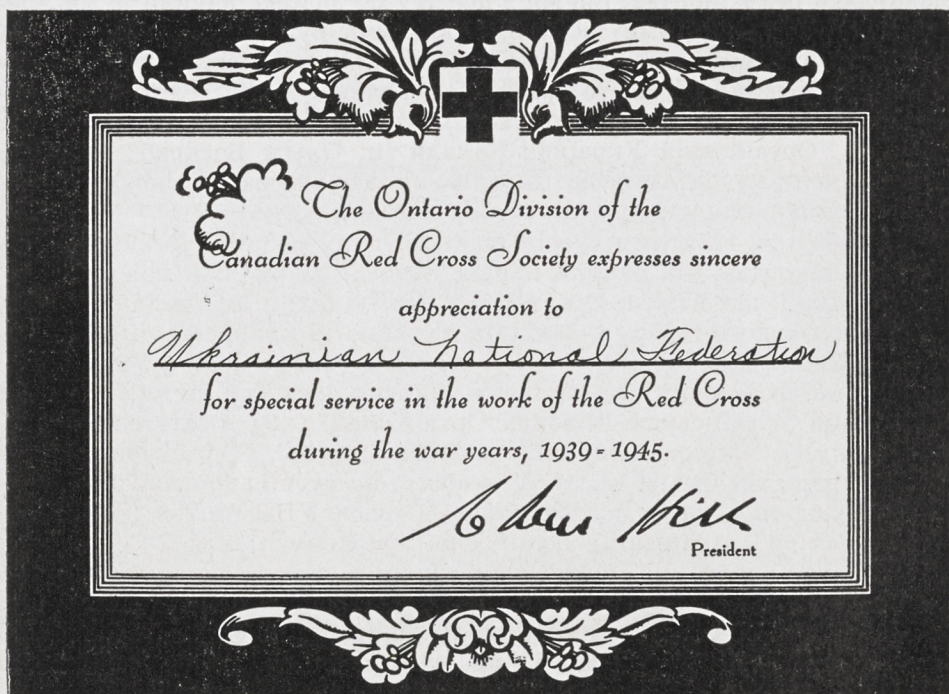 The Ontario Division of the
Canadian Red Cross Society expresses sincere
appreciation to
Ukrainian National Federation
for special service in the work of the Red Cross
during the war years, 1939-1945.
President